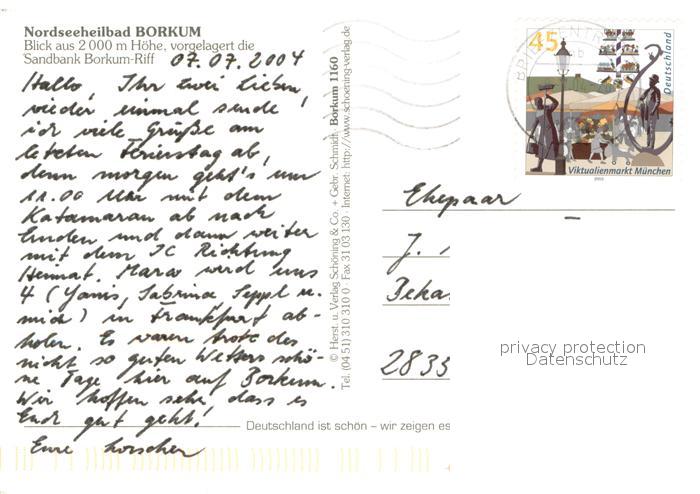 Nordseeheilbad BORKUM
Blick aus 2 000 m Höhe, vorgelagert die
Sandbank Borkum-Riff
07.07.2004
Hallo, Ihr zwei Lieben,
wieder einmal sende
ich viele Grüße am
letzten Ferientag ab,
denn morgen geht's um
11.00 Uhr mit dem
Katamaran ab nach
Emden und dann weiter
mit dem IC Richtung
Heimat. Mara wird uns
4 (Yanis, Sabrina, Seppl u.
mich) in Frankfurt ab-
holen. Es waren trotz des
nicht so guten Wetters schö-
ne Tage hier auf Borkum.
Wir hoffen sehr, dass es
Euch gut geht!
Eure
© Herst. u. Verlag Schöning & Co. + Gebr. Schmidt, Borkum 1160
Tel. (04 51) 310 310 0 · Fax 31 03 130 · Internet: http://www.schoening-verlag.de
45
Deutschland
Viktualienmarkt München
Ehepaar
J.
Beka
2835
privacy protection
Datenschutz
Deutschland ist schön – wir zeigen es